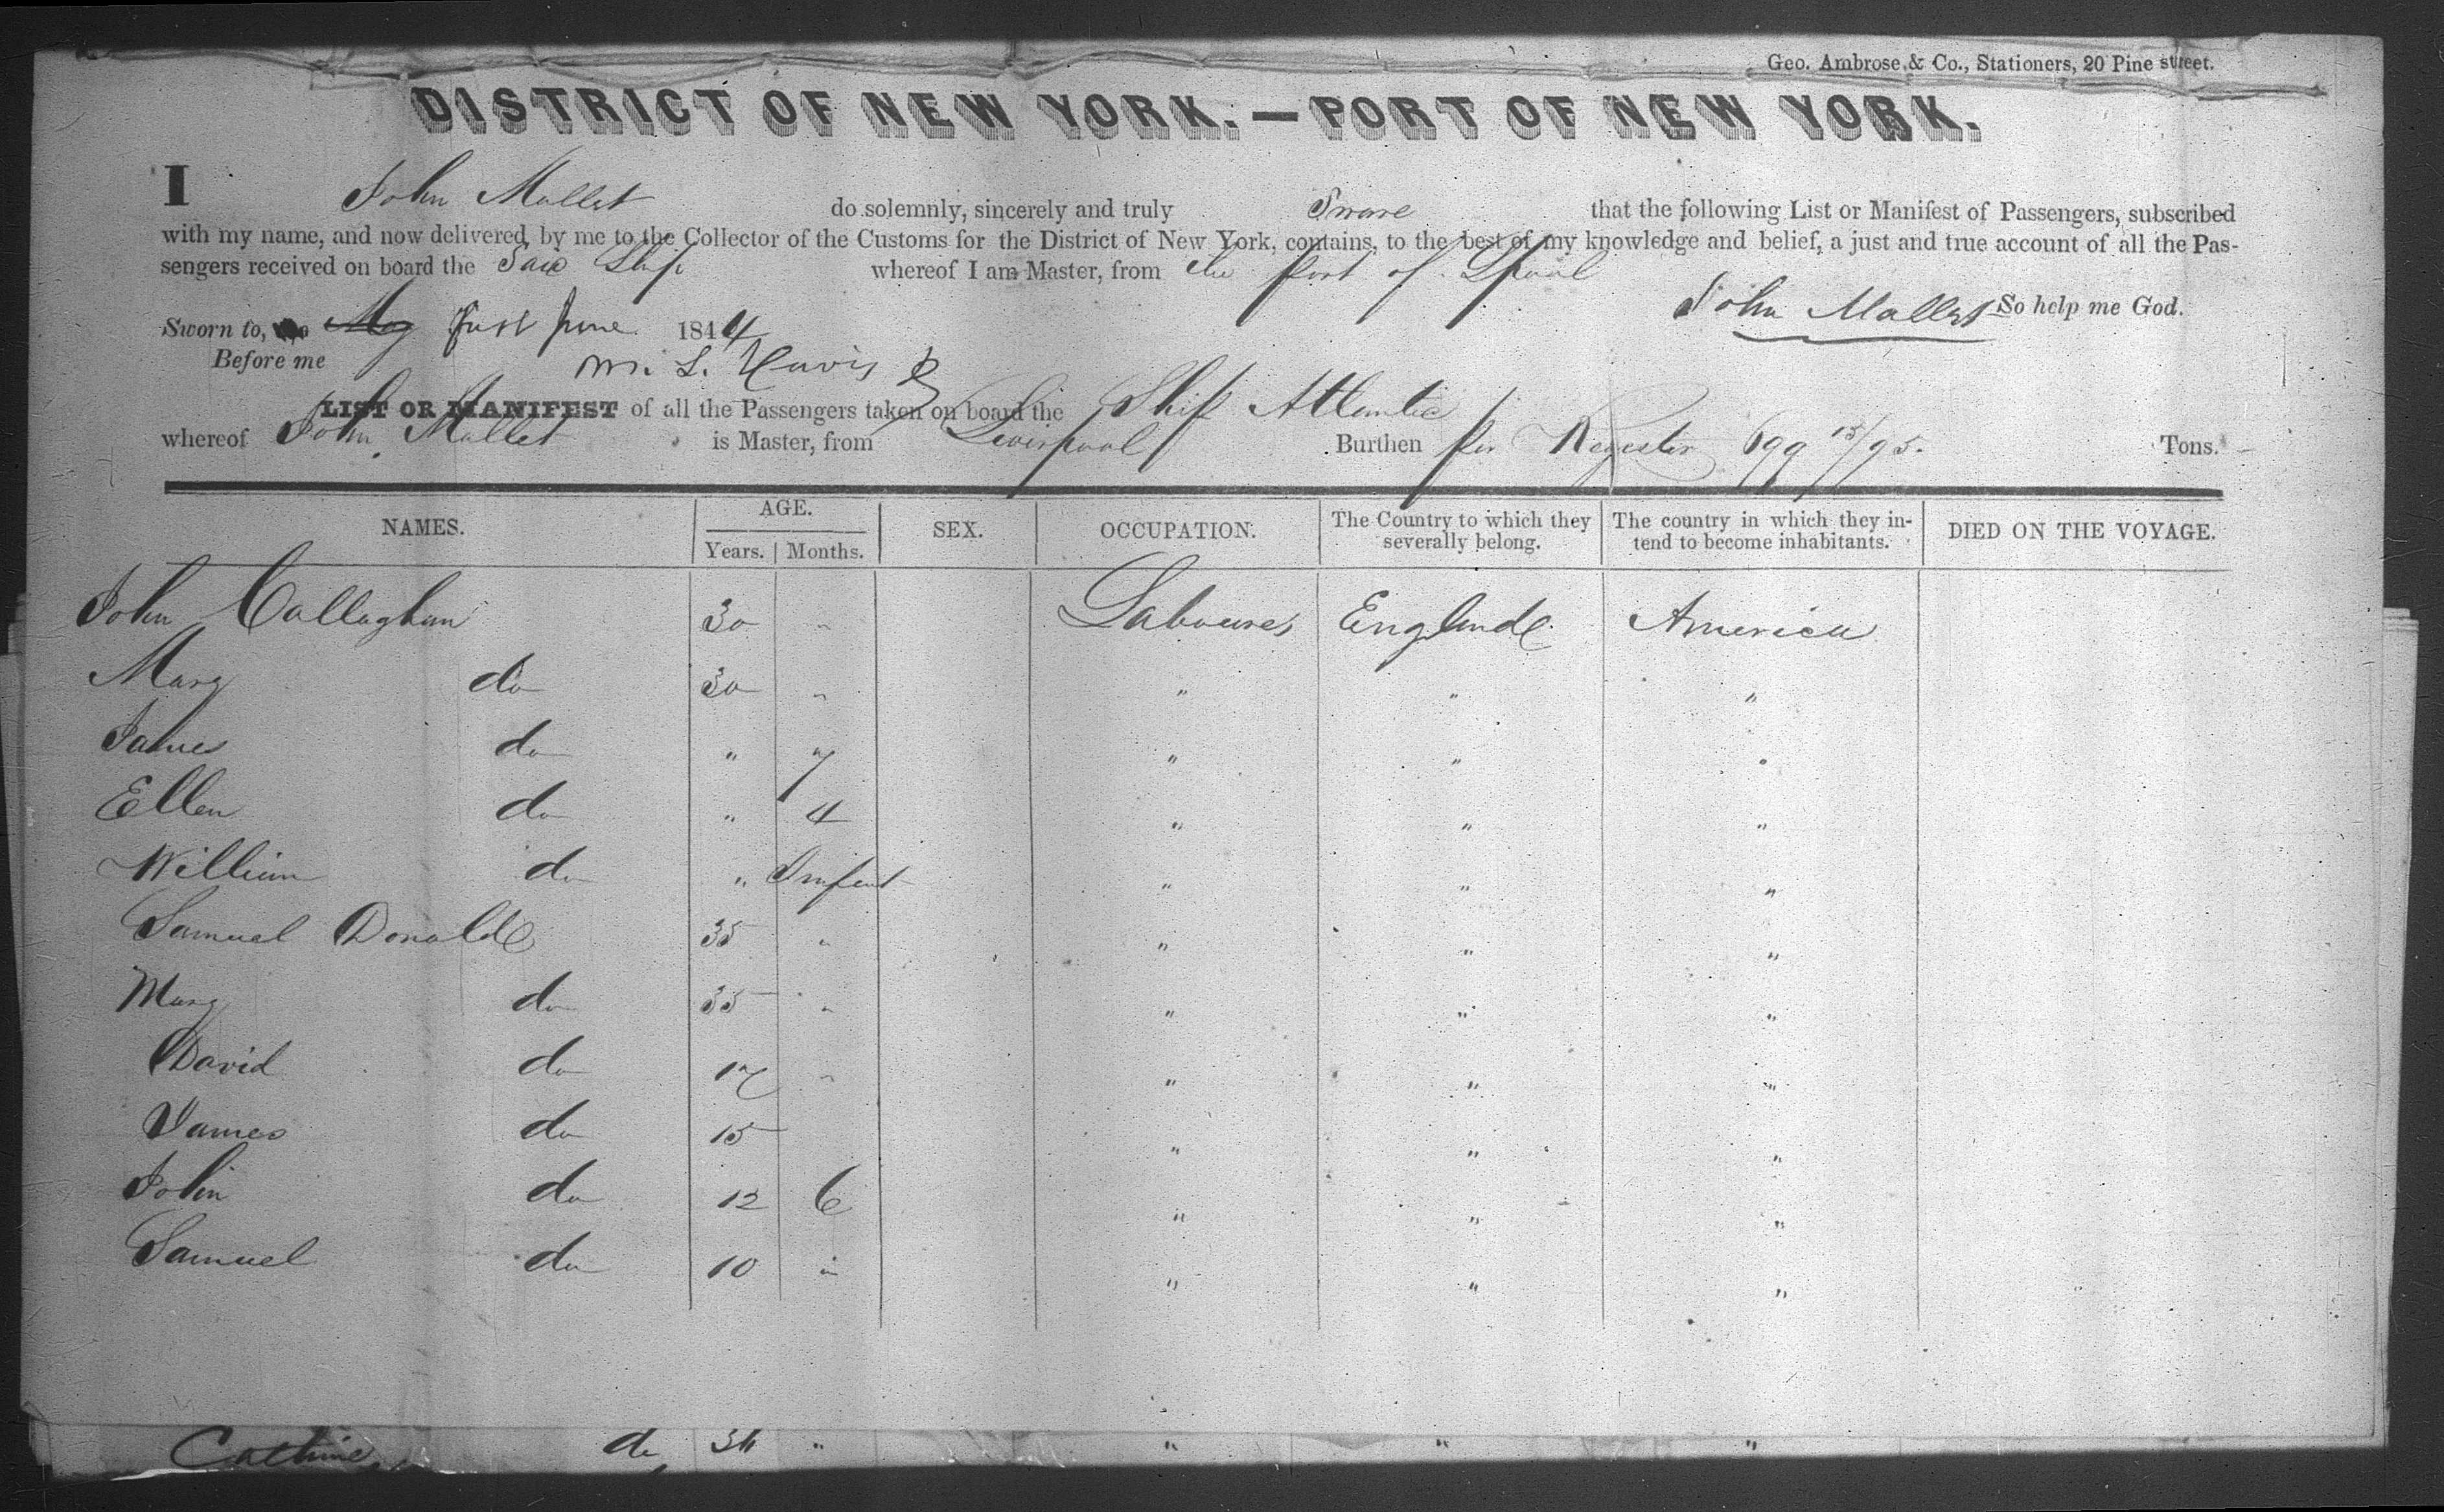 Geo. Ambrose & Co., Stationers, 20 Pine street.
DISTRICT OF NEW YORK.—PORT OF NEW YORK.
I John Mallet do solemnly, sincerely and truly Sware that the following List or Manifest of Passengers, subscribed
with my name, and now delivered by me to the Collector of the Customs for the District of New York, contains, to the best of my knowledge and belief, a just and true account of all the Pas-
sengers received on board the Said Ship whereof I am Master, from the Port of Lpool
John Mallet So help me God.
Sworn to, May first June 1844
Before me Wm. S. Davis
LIST OR MANIFEST of all the Passengers taken on board the Ship Atlantic
whereof John Mallet is Master, from Liverpool Burthen per Register 699 15/95. Tons.
NAMES. AGE. SEX. OCCUPATION. The Country to which they severally belong. The country in which they in-tend to become inhabitants. DIED ON THE VOYAGE.
Years. Months.
John Callaghan 30 " Labourer England America
Mary do 30 " " " "
James do " 7 " " "
Ellen do " 4 " " "
William do " Infant " " "
Samuel Donald 35 " " " "
Mary do 35 " " " "
David do 17 " " " "
James do 15 " " "
John do 12 6 " " "
Samuel do 10 " " " "
Cathine do 34 " " " "